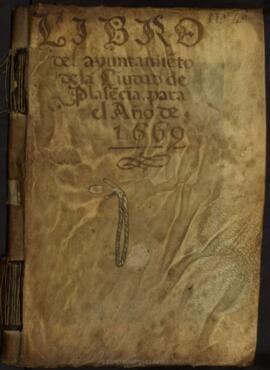 LIBRO
del ayuntamiēto
de la Ciudad de
Plasēcia. para
el Año de
1669